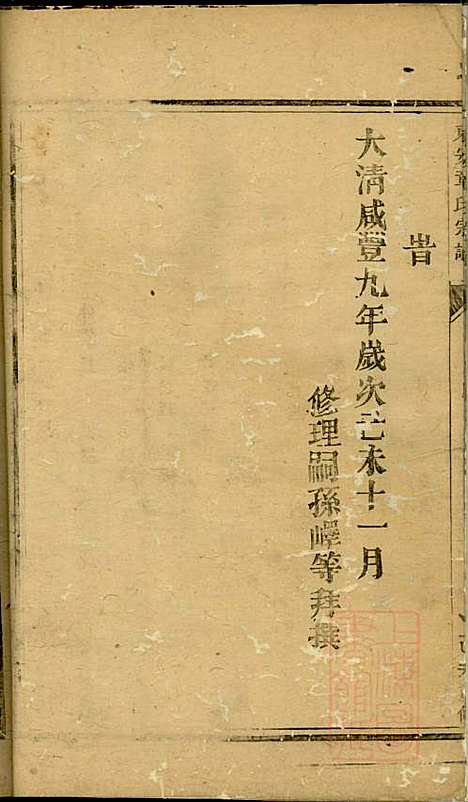 旹
大清咸豐九年歲次己未十一月
修理嗣孫嶧等拜撰
章氏宗譜